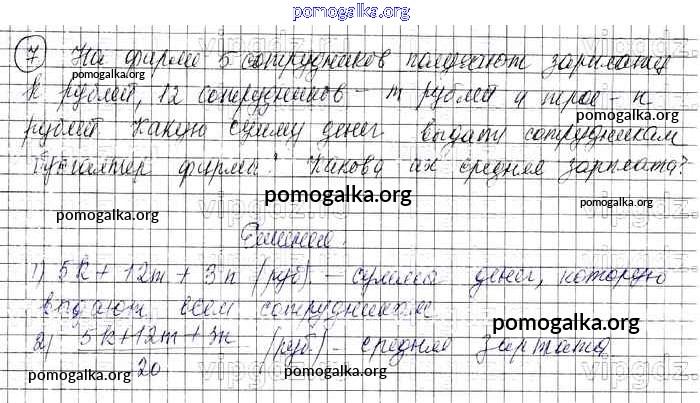 pomogalka.org
7 На фирме 5 сотрудников получают зарплату
pomogalka.org
k рублей, 12 сотрудников - m рублей и трое - n
pomogalka.org
рублей. Какую сумму денег выдаст сотрудникам
бухгалтер фирмы? Какова их средняя зарплата?
pomogalka.org
pomogalka.org
pomogalka.org
Решение.
1) 5k + 12m + 3n (руб) - сумма денег, которую
выдают всем сотрудникам
pomogalka.org
2) 5k+12m+3n / 20 (руб) - средняя зарплата
pomogalka.org
pomogalka.org
pomogalka.org